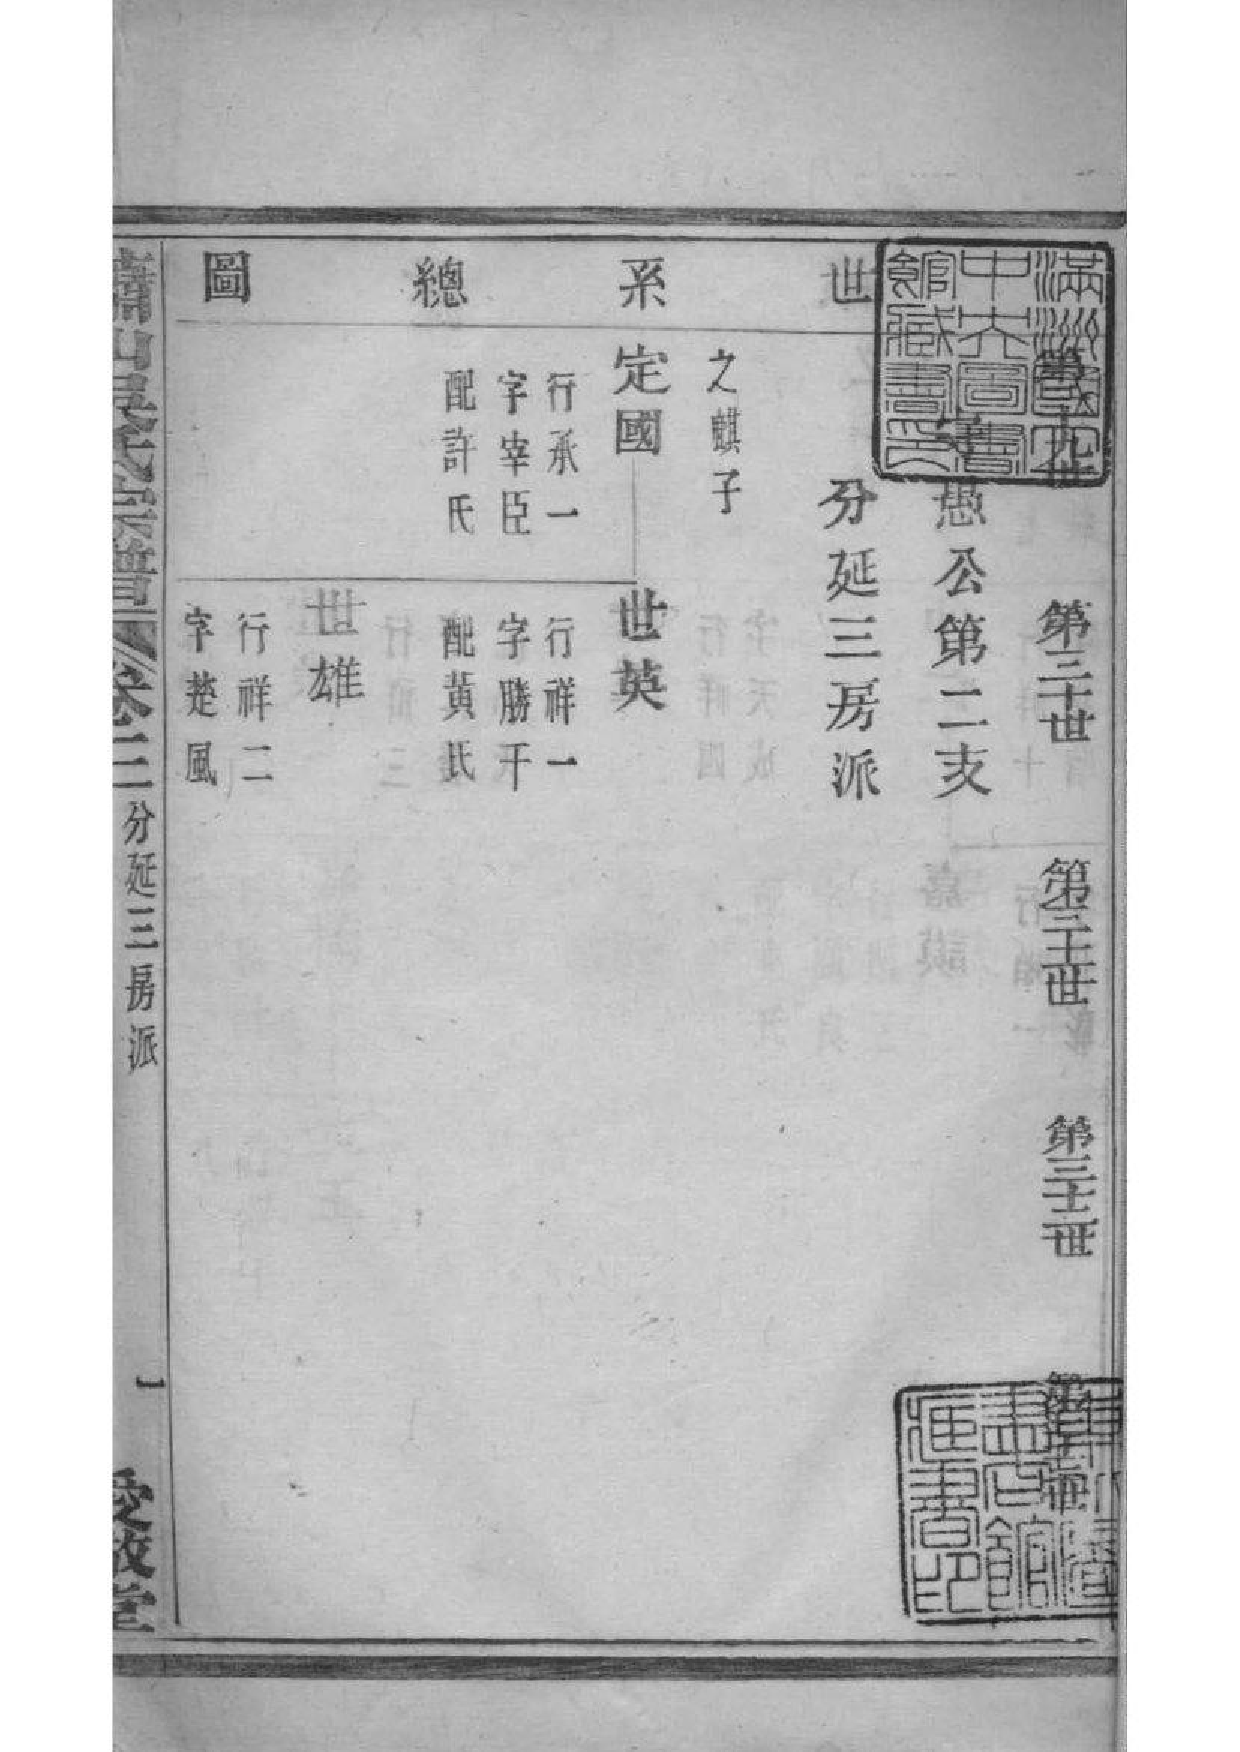 世系總圖
第十九世
第二十世
第二十一世
第二十二世
愚公第二支
分延三房派
之麒子
定國
行承一
字宰臣
配許氏
世英
行祥一
字勝千
配黃氏
世雄
行祥二
字楚風
蕭山吳氏宗譜
卷二
分延三房派
一
愛敬堂
滿洲國立中央圖書館藏書印